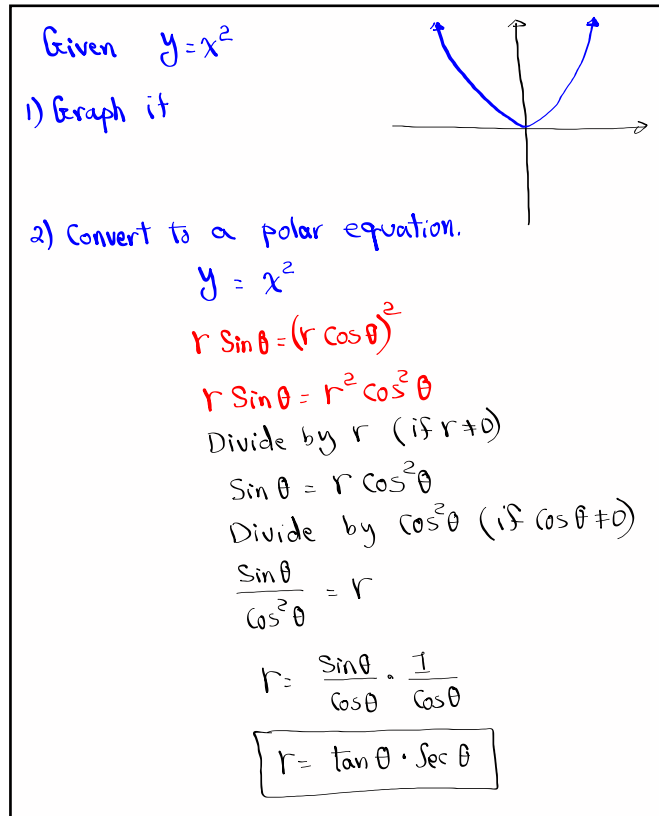 Given y = x²
1) Graph it
2) Convert to a polar equation.
y = x²
r Sin θ = (r Cos θ)²
r Sin θ = r² Cos² θ
Divide by r (if r ≠ 0)
Sin θ = r Cos² θ
Divide by Cos² θ (if Cos θ ≠ 0)
Sin θ / Cos² θ = r
r = Sin θ / Cos θ · 1 / Cos θ
r = tan θ · Sec θ